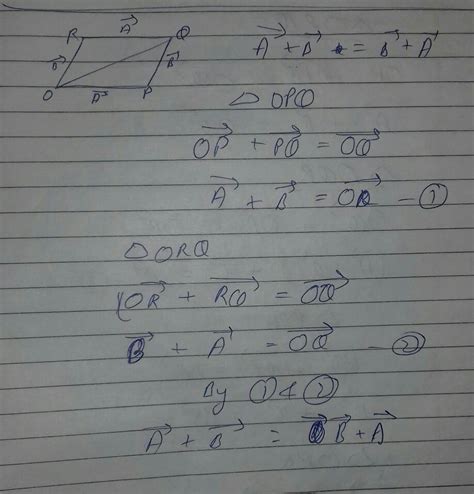 R A⃗ Q
B⃗ B⃗
O A⃗ P
A⃗ + B⃗ = B⃗ + A⃗
△ OPQ
OP⃗ + PQ⃗ = OQ⃗
A⃗ + B⃗ = OQ⃗ — ①
△ ORQ
(OR⃗ + RQ⃗ = OQ⃗
B⃗ + A⃗ = OQ⃗ — ②
By ① & ②
A⃗ + B⃗ = B⃗ + A⃗